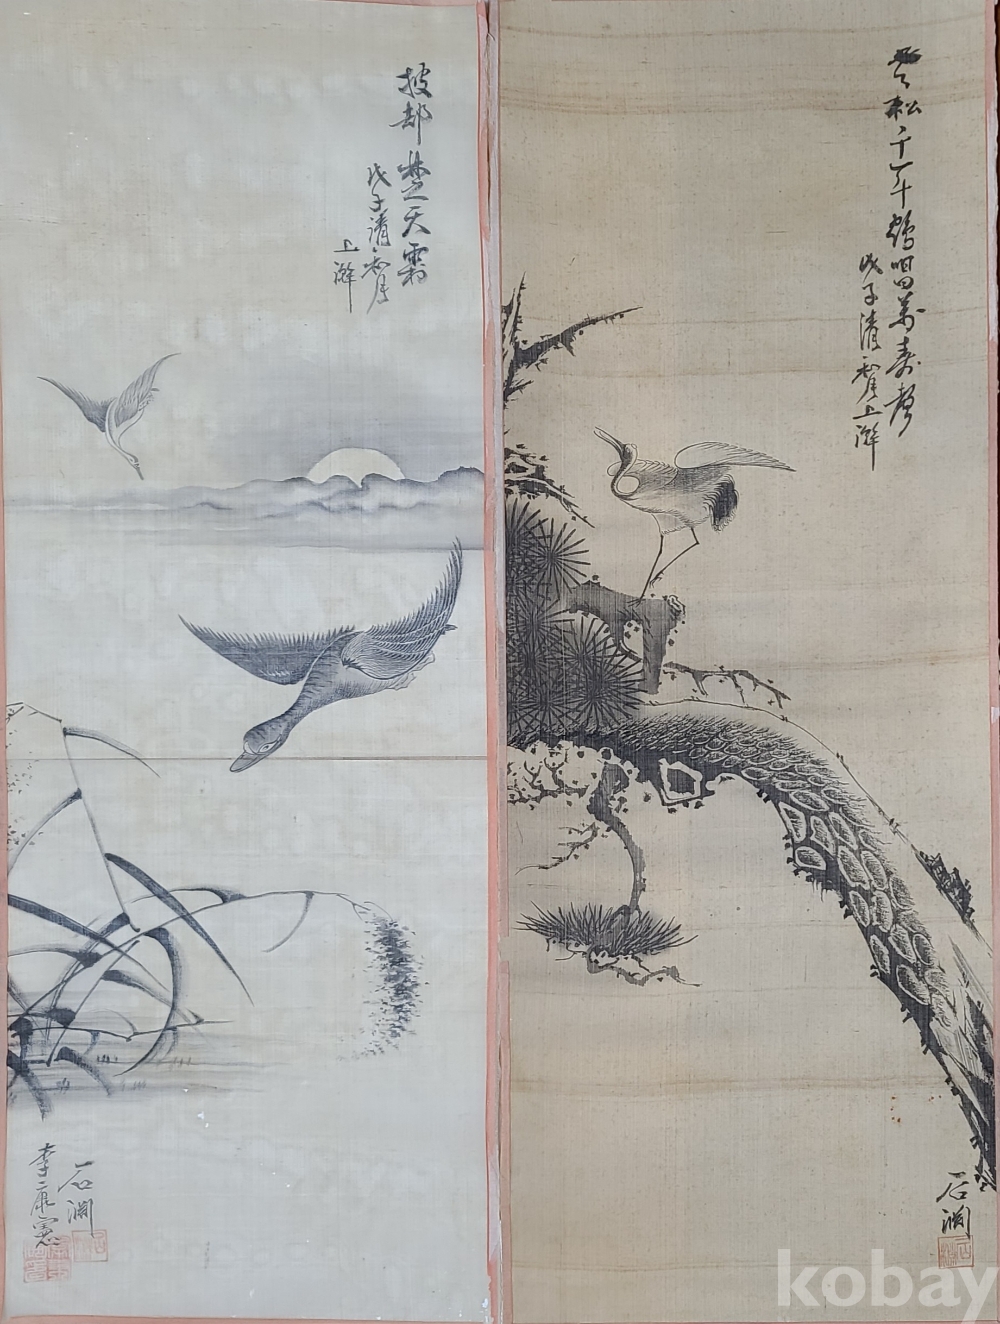 披却楚天霜
戊子清和月
上澣
石淵
李
憲
松千年鶴唱萬壽聲
戊子清和月上澣
石淵
kobay